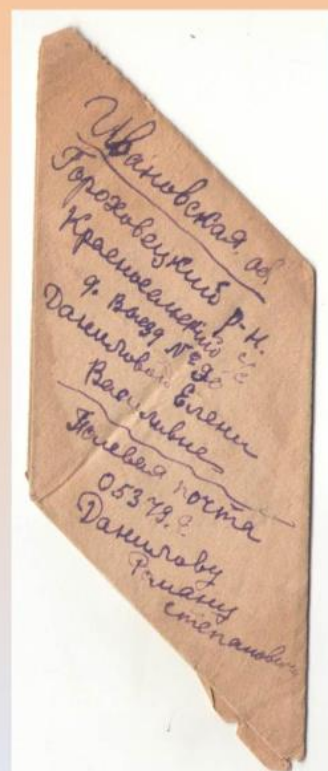 Ивановская обл
Гороховецкий р-н.
Красносельский с/с
д. Выезд № 30
Даниловой Елени
Василивне
Полевая почта
05379.
Данилову
Роману
Степанович